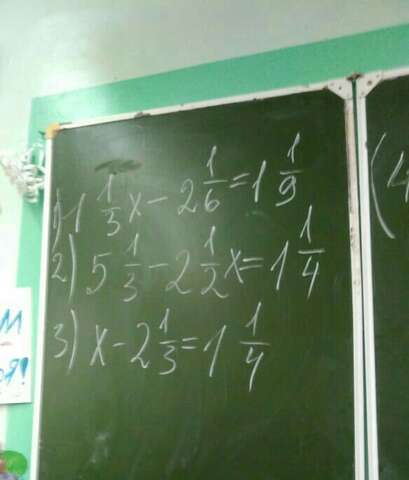 1) 1 1/3 x - 2 1/6 = 1 1/9
2) 5 1/3 - 2 1/2 x = 1 1/4
3) x - 2 1/3 = 1 1/4
(4